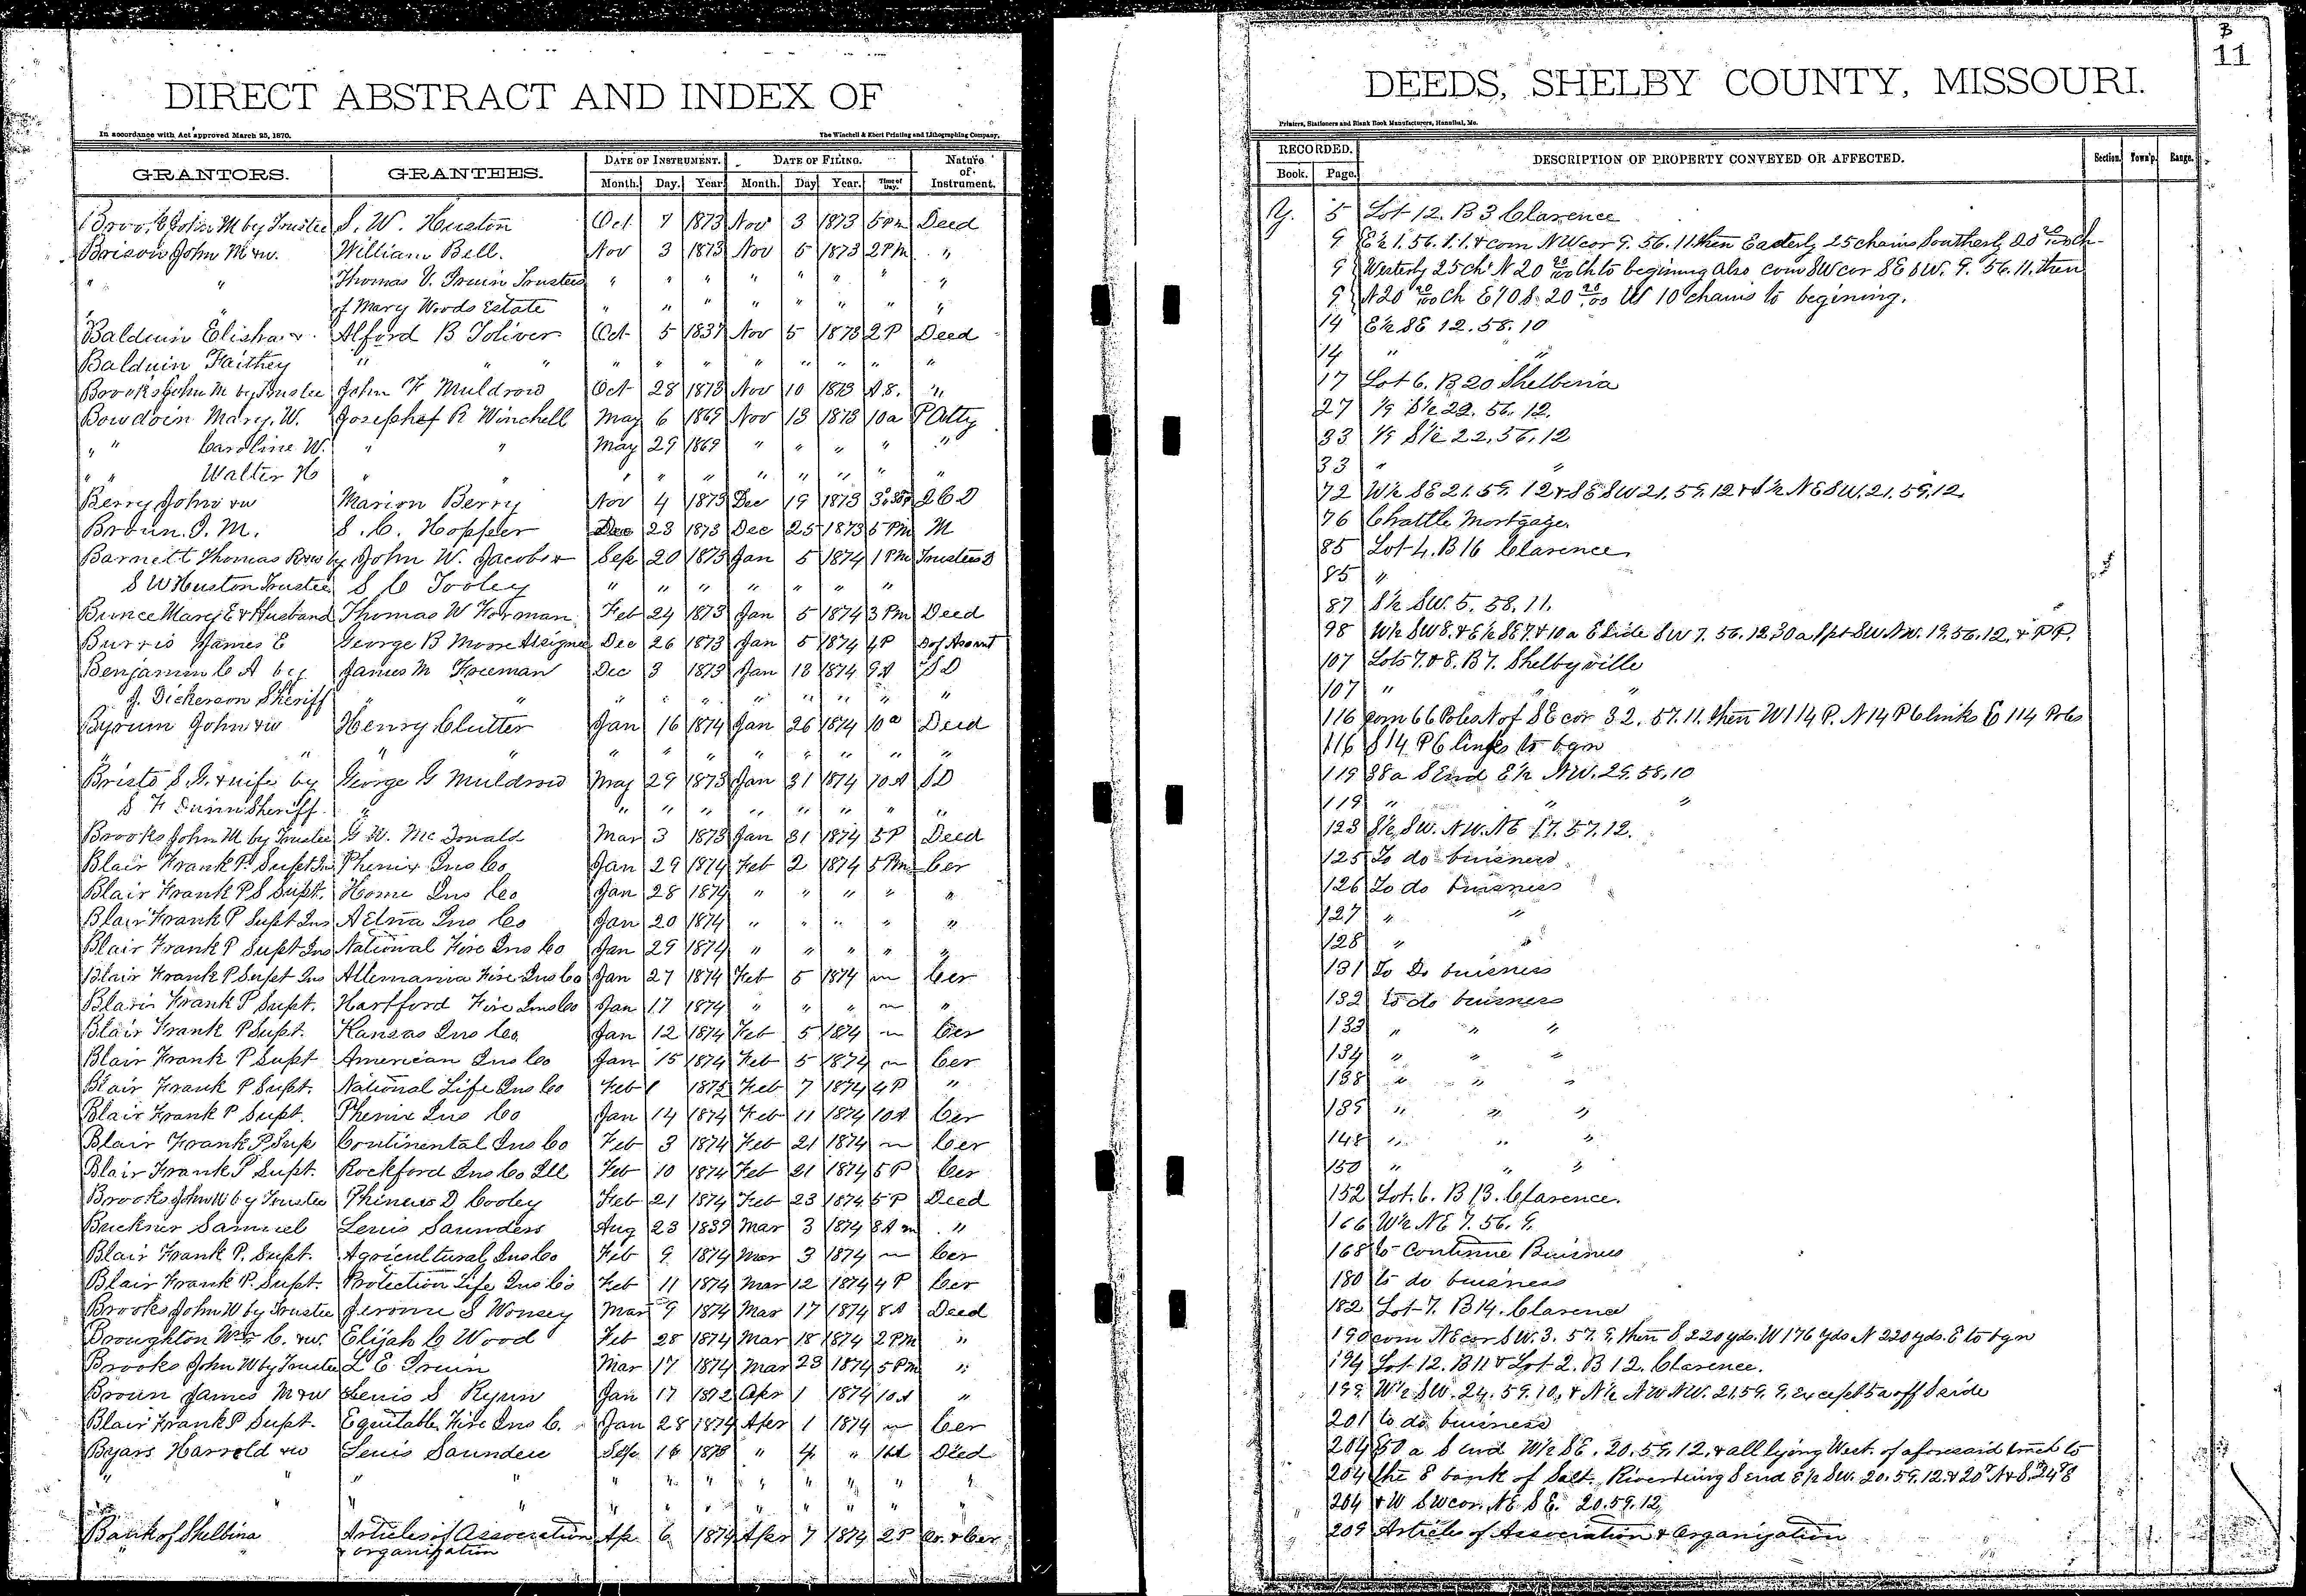 DIRECT ABSTRACT AND INDEX OF
In accordance with Act approved March 25, 1870. The Winchell & Ebert Printing and Lithographing Company.
GRANTORS. GRANTEES. DATE OF INSTRUMENT. DATE OF FILING. Nature of Instrument.
Month. Day. Year. Month. Day. Year. Time of Day.
Brooks John M by Trustee S. W. Huston Oct 7 1873 Nov 3 1873 5 Pm Deed
Brison John M & w. William Bell. Nov 3 1873 Nov 5 1873 2 PM "
" " Thomas V. Irwin Trustees " " " " " " " "
" " of Mary Woods Estate " " " " " " " "
Balduin Elisha & Alford B Toliver Oct 5 1837 Nov 5 1873 2 P Deed
Balduin Faithey " " " " " " " " " " "
Brooks John M by Trustee John F Muldrow Oct 28 1873 Nov 10 1873 A 8. "
Bowdoin Mary. W. Josephef R Winchell May 6 1869 Nov 13 1873 10 a P Atty
" " Caroline W. " " May 29 1869 " " " " "
" " Walter H " " " " " " " " " "
Berry John & w Marion Berry Nov 4 1873 Dec 19 1873 2 C D
Broun. J. M. S. C. Hopper Dec 23 1873 Dec 25 1873 5 PM M
Barnett Thomas R & w by John W. Jacobs & Sep 20 1873 Jan 5 1874 1 PM Trustees D
S W Huston Trustee S C Tooley " " " " " " "
Bunce Mary E & Husband Thomas W Forman Feb 24 1873 Jan 5 1874 3 Pm Deed
Burris James E George B Moore Assignee Dec 26 1873 Jan 5 1874 4 P D of Assmt
Benjamin C A by James M Freeman Dec 3 1873 Jan 13 1874 9 A S D
J. Dickerson Sheriff " " " " " " " " " "
Byrum John & w Henry Clutter Jan 16 1874 Jan 26 1874 10 a Deed
" " " " " " " " " " " "
Bristo S. G. & wife by George G Muldrow May 29 1873 Jan 31 1874 10 A S D
S F Dunn Sheriff " " " " " " " " "
Brooks John M by Trustee G W. Mc Donald Mar 3 1873 Jan 31 1874 5 P Deed
Blair Frank P. Supt Ins Phenix Ins Co Jan 29 1874 Feb 2 1874 5 Pm Cer
Blair Frank P S Supt. Home Ins Co Jan 28 1874 " " " " "
Blair Frank P Supt Ins Aetna Ins Co Jan 20 1874 " " " " "
Blair Frank P Supt Ins National Fire Ins Co Jan 29 1874 " " " " "
Blair Frank P Supt Ins Allemania Fire Ins Co Jan 27 1874 Feb 5 1874 m Cer
Blair Frank P Supt. Hartford Fire Ins Co Jan 17 1874 " " " m "
Blair Frank P Supt. Kansas Ins Co. Jan 12 1874 Feb 5 1874 m Cer
Blair Frank P Supt American Ins Co Jan 15 1874 Feb 5 1874 m Cer
Blair Frank P Supt. National Life Ins Co Feb 1 1875 Feb 7 1874 4 P "
Blair Frank P Supt. Phenix Ins Co Jan 14 1874 Feb 11 1874 10 A Cer
Blair Frank P. Sup Continental Ins Co Feb 3 1874 Feb 21 1874 m Cer
Blair Frank P Supt. Rockford Ins Co Ill Feb 10 1874 Feb 21 1874 5 P Cer
Brooks John W by Trustee Phineus D Cooley Feb 21 1874 Feb 23 1874 5 P Deed
Buckner Samuel Lewis Saunders Aug 23 1839 Mar 3 1874 8 A m "
Blair Frank P. Supt. Agricultural Ins Co Feb 9 1874 Mar 3 1874 m Cer
Blair Frank P. Supt. Protection Life Ins Co Feb 11 1874 Mar 12 1874 4 P Cer
Brooks John W by Trustee Jerome S Wonsey Mar 9 1874 Mar 17 1874 8 A Deed
Broughton Wm C. & w. Elijah C Wood Feb 28 1874 Mar 18 1874 2 PM "
Brooks John W by Trustee L E Irwin Mar 17 1874 Mar 23 1874 5 PM "
Broun James M & w Lewis S Rynn Jan 17 1872 Apr 1 1874 10 A "
Blair Frank P Supt. Equitable Fire Ins C. Jan 28 1874 Apr 1 1874 m Cer
Byars Harrold & w Lewis Saunders Sep 16 1873 " 4 " Deed
" " " " " " " " " " " "
" " " " " " " " " " " "
Bank of Shelbina Articles of Association & organization Ap. 6 1874 Apr 7 1874 2 P Ar. & Cer.
B
11
DEEDS, SHELBY COUNTY, MISSOURI.
Printers, Stationers and Blank Book Manufacturers, Hannibal, Mo.
RECORDED. DESCRIPTION OF PROPERTY CONVEYED OR AFFECTED. Section. Town'p. Range.
Book. Page.
Y. 5 Lot 12. B 3 Clarence
9 E½ 1. 56. 11. & com NW cor 9. 56. 11 then Easterly 25 chains Southerly 20 20/100 ch
9 Westerly 25 ch N 20 20/100 ch to beginning also com SW cor SE SW. 9. 56. 11. then
9 N 20 20/100 Ch E 10 S. 20 20/100 W 10 chains to begining.
14 E½ SE 12. 58. 10
14 " "
17 Lot 6. B 20 Shelbina
27 1/9 S½ 22. 56. 12.
33 1/9 S½ 22. 56. 12
33 " "
72 W½ SE 21. 59. 12 & SE SW 21. 59. 12 & S½ NE SW. 21. 59. 12.
76 Chattle Mortgage.
85 Lot 4. B 16 Clarence
85 "
87 S½ SW. 5. 58. 11.
98 W½ SW 8. & E½ SE 7. & 10 a E Side SW 7. 56. 12. 30 a Spt SW NW. 19. 56. 12. & P P.
107 Lots 7. & 8. B 7. Shelbyville
107 " " "
116 com 66 Poles N of SE cor 32. 57. 11. then W 114 P. N 14 P 6 links E 114 Poles
116 S 14 P 6 links to bgn
119 38 a S End E½ NW. 29. 58. 10
119 " " "
123 S½ SW. NW. NE 17. 57. 12.
125 To do buisness
126 To do buisness
127 " "
128 " "
131 To Do buisness
132 to do buisness
133 " " "
134 " " "
138 " " "
139 " " "
148 " " "
150 " " "
152 Lot. 6. B 13. Clarence.
166 W½ NE 7. 56. 9.
168 to Continue Buisness
180 to do buisness
182 Lot 7. B 14. Clarence
190 com NE cor SW. 3. 57. 9. then S 220 yds. W 176 yds N 220 yds. E to bgn
194 Lot 12. B 11 & Lot 2. B 12. Clarence.
199 W½ SW. 24. 59. 10. & N½ NW NW. 21. 59. 9. except 5 a off S side
201 to do buisness
204 50 a S end W½ SE. 20. 59. 12. & all lying West. of aforesaid tract to
204 the S bank of Salt. River being S end E½ SW. 20. 59. 12. &
204 & W SW cor. NE SE. 20. 59. 12.
209 Articles of Association & Organization